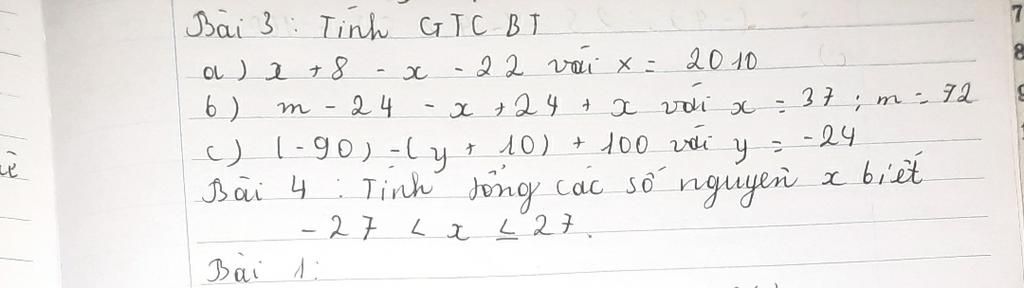 Bài 3 : Tính GTC BT
a) x + 8 - x - 22 với x = 2010
b) m - 24 - x + 24 + x với x = 37 ; m = 72
c) (-90) - (y + 10) + 100 với y = -24
Bài 4 : Tính tổng các số nguyên x biết
- 27 < x ≤ 27.
Bài 1: